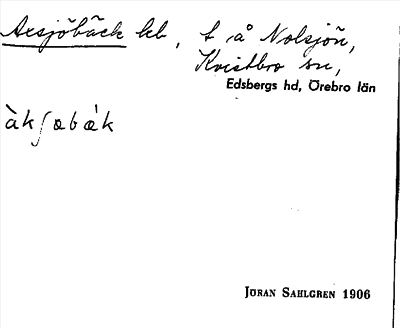 Axsjöbäck hb, t å Nolsjön,
Kvistbro sn,
Edsbergs hd, Örebro län
àkʃɷbák
JÖRAN SAHLGREN 1906